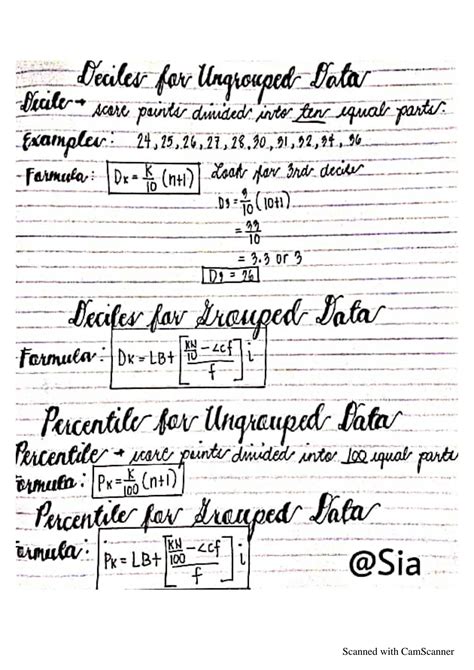 Deciles for Ungrouped Data
Decile → score points divided into ten equal parts.
Examples: 24, 25, 26, 27, 28, 30, 31, 32, 34, 36
Formula: Dk = k/10 (n+1) Look for 3rd decile
D3 = 3/10 (10+1)
= 33/10
= 3.3 or 3
D3 = 26
Deciles for Grouped Data
Formula: Dk = LB + [kN/10 - <cf / f] i
Percentile for Ungrouped Data
Percentile → score points divided into 100 equal parts
ormula: Pk = k/100 (n+1)
Percentile for Grouped Data
ormula: Pk = LB + [kN/100 - <cf / f] i
@Sia
Scanned with CamScanner